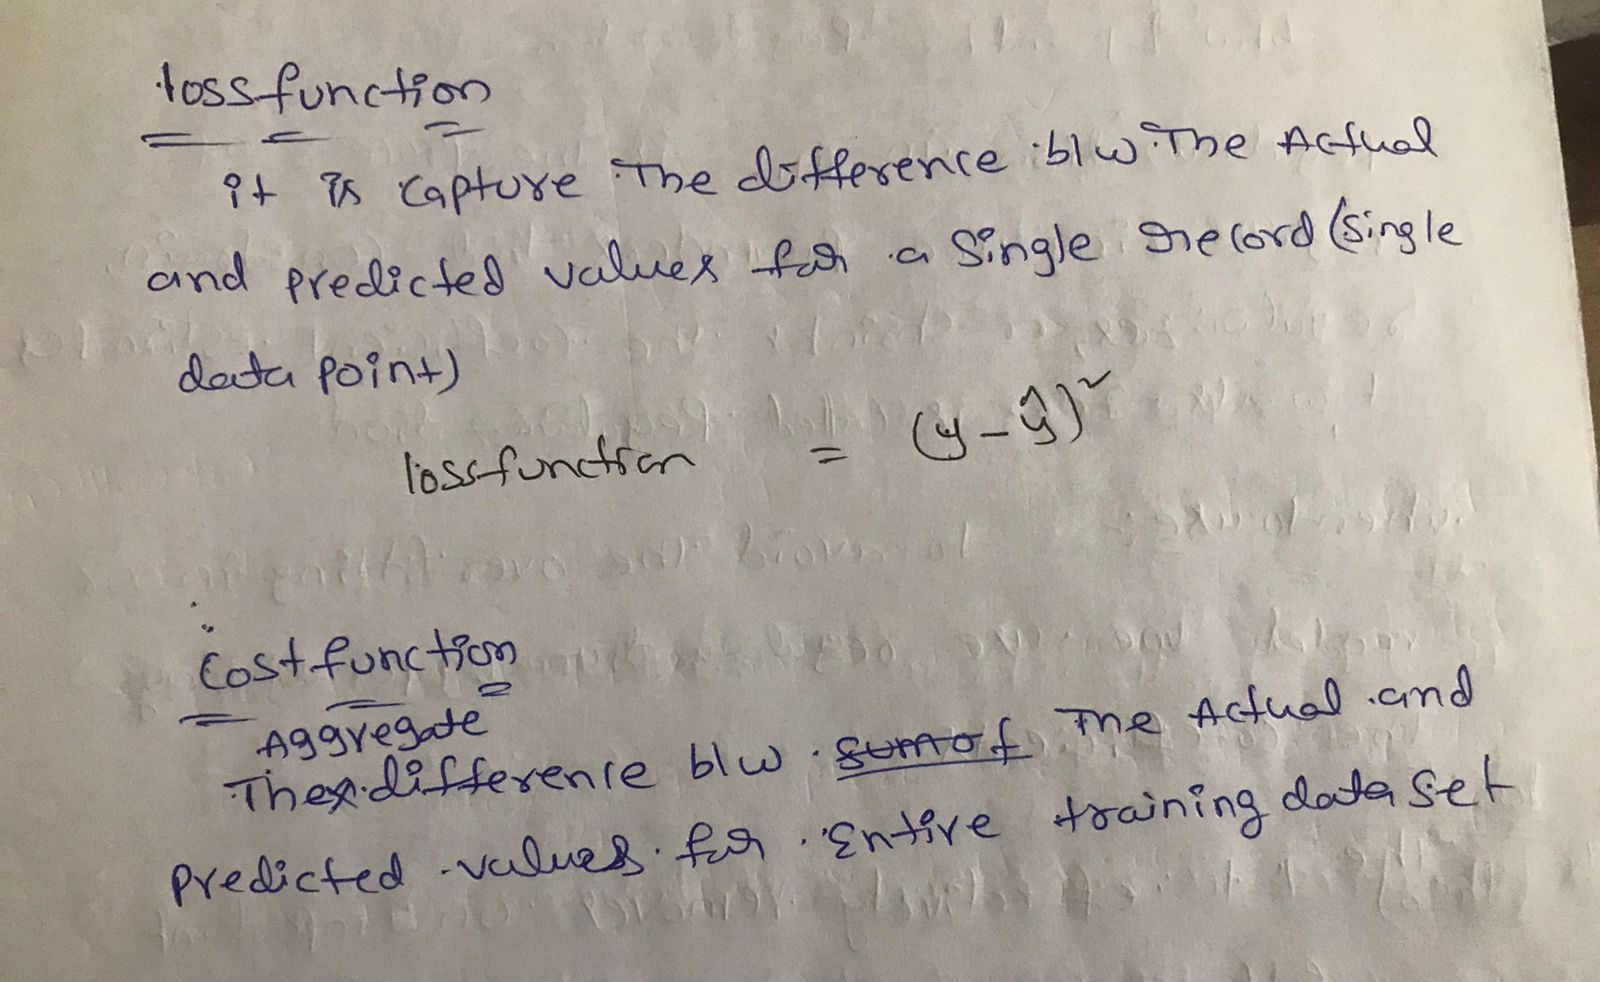 loss function
it is capture The difference b/w The Actual
and predicted values for a Single record (single
data point)
loss function = (y - ŷ)²
Cost function
Aggregate
The difference b/w sum of The Actual and
predicted values for Entire training data set